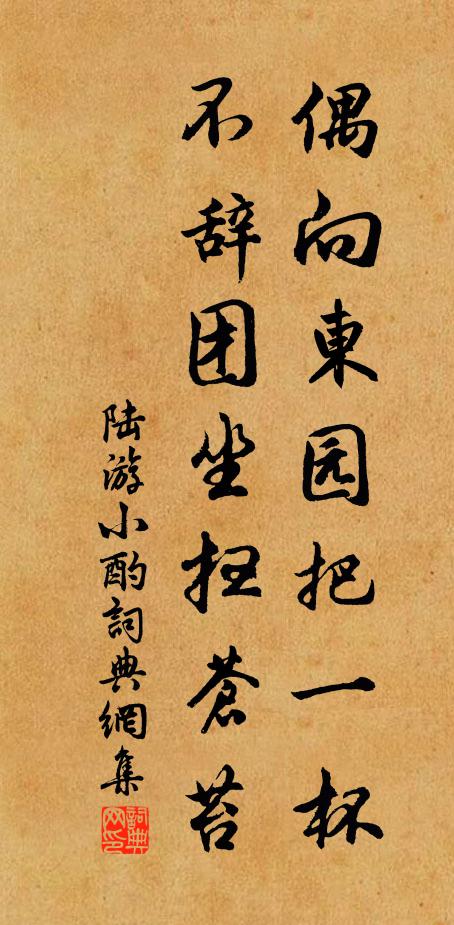 偶向東园把一杯
不辞团坐扫蒼苔
陆游小酌詞典網集
詞典网印